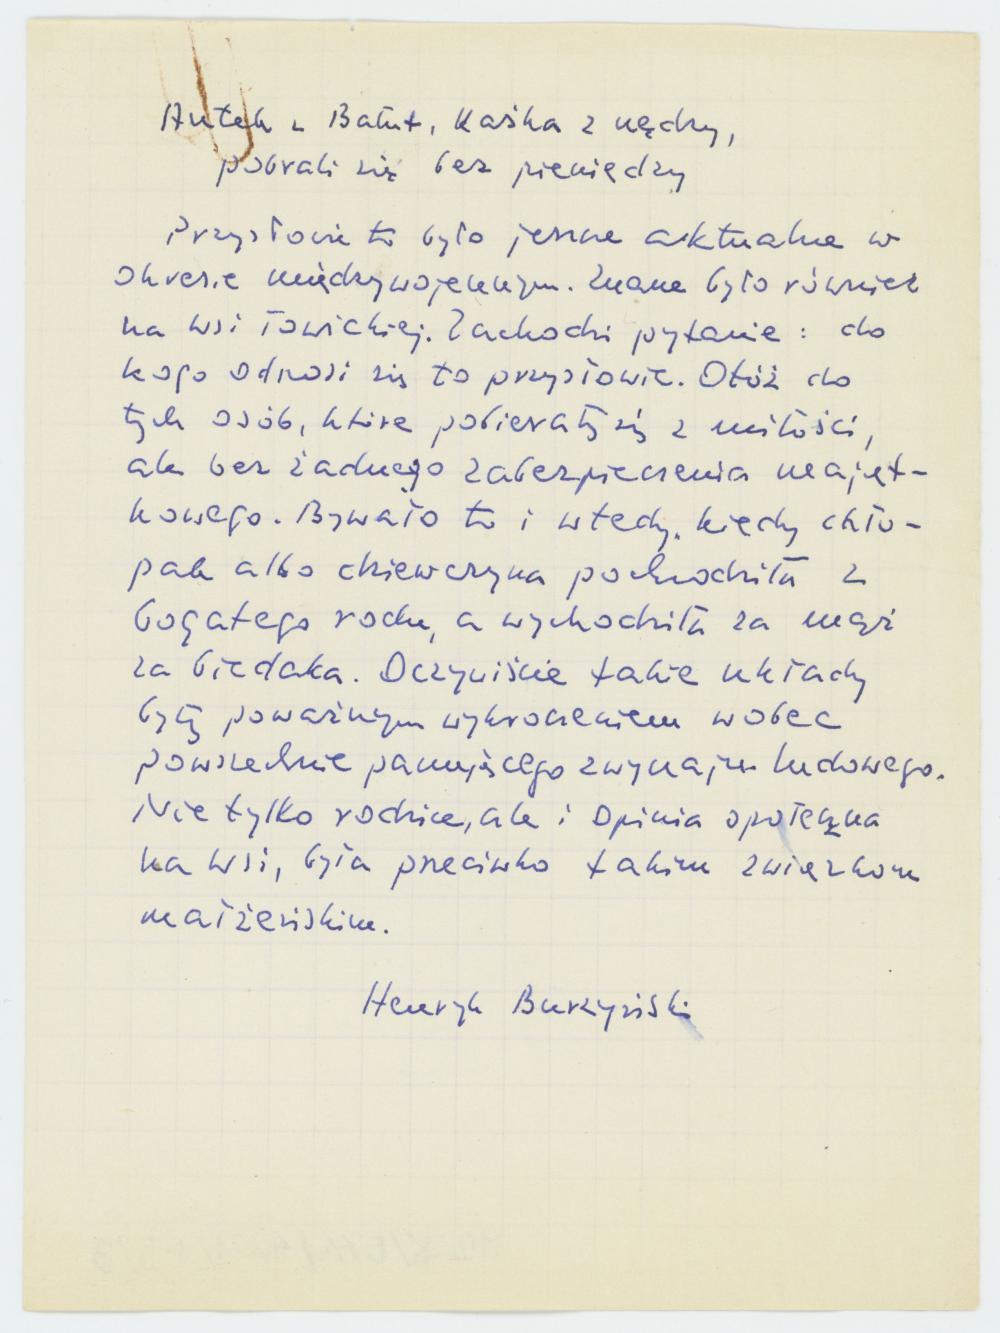 Antek z Bałut, Kaśka z nędzy,
pobrali się bez pieniędzy
Przysłowie to było jeszcze aktualne w
okresie międzywojennym. Znane było również
na wsi łowickiej. Zachodzi pytanie: do
kogo odnosi się to przysłowie. Otóż do
tych osób, które pobierały się z miłości,
ale bez żadnego zabezpieczenia mająt-
kowego. Bywało to i wtedy, kiedy chło-
pak albo dziewczyna pochodziła z
bogatego rodu, a wychodziła za mąż
za biedaka. Oczywiście takie układy
były poważnym wykroczeniem wobec
powszechnie panującego zwyczaju ludowego.
Nie tylko rodzice, ale i opinia społeczna
na wsi, była przeciwko takim związkom
małżeńskim.
Henryk Burzyński